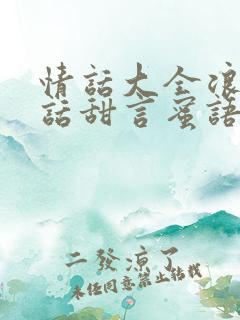 情話大全浪
話甜言蜜語
二發涼了
未經同意禁止轉載